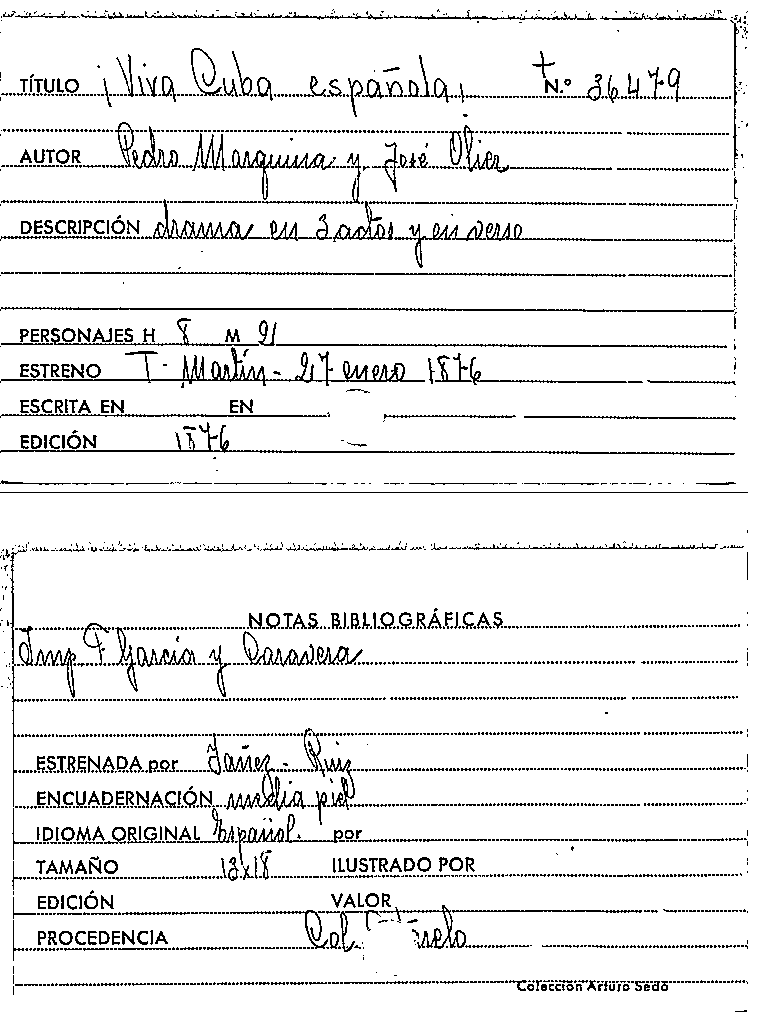 TÍTULO ¡Viva Cuba española! N.º 36479
AUTOR Pedro Marquina y José Olier
DESCRIPCIÓN drama en 3 actos y en verso
PERSONAJES H 8 M 2
ESTRENO T. Martín - 27 enero 1876
ESCRITA EN EN
EDICIÓN 1876
NOTAS BIBLIOGRÁFICAS
Imp F García y Caravera
ESTRENADA por Yañez - Ruiz
ENCUADERNACIÓN media piel
IDIOMA ORIGINAL Español. por
TAMAÑO 13x18 ILUSTRADO POR
EDICIÓN VALOR
PROCEDENCIA Col.
Colección Arturo Sedó